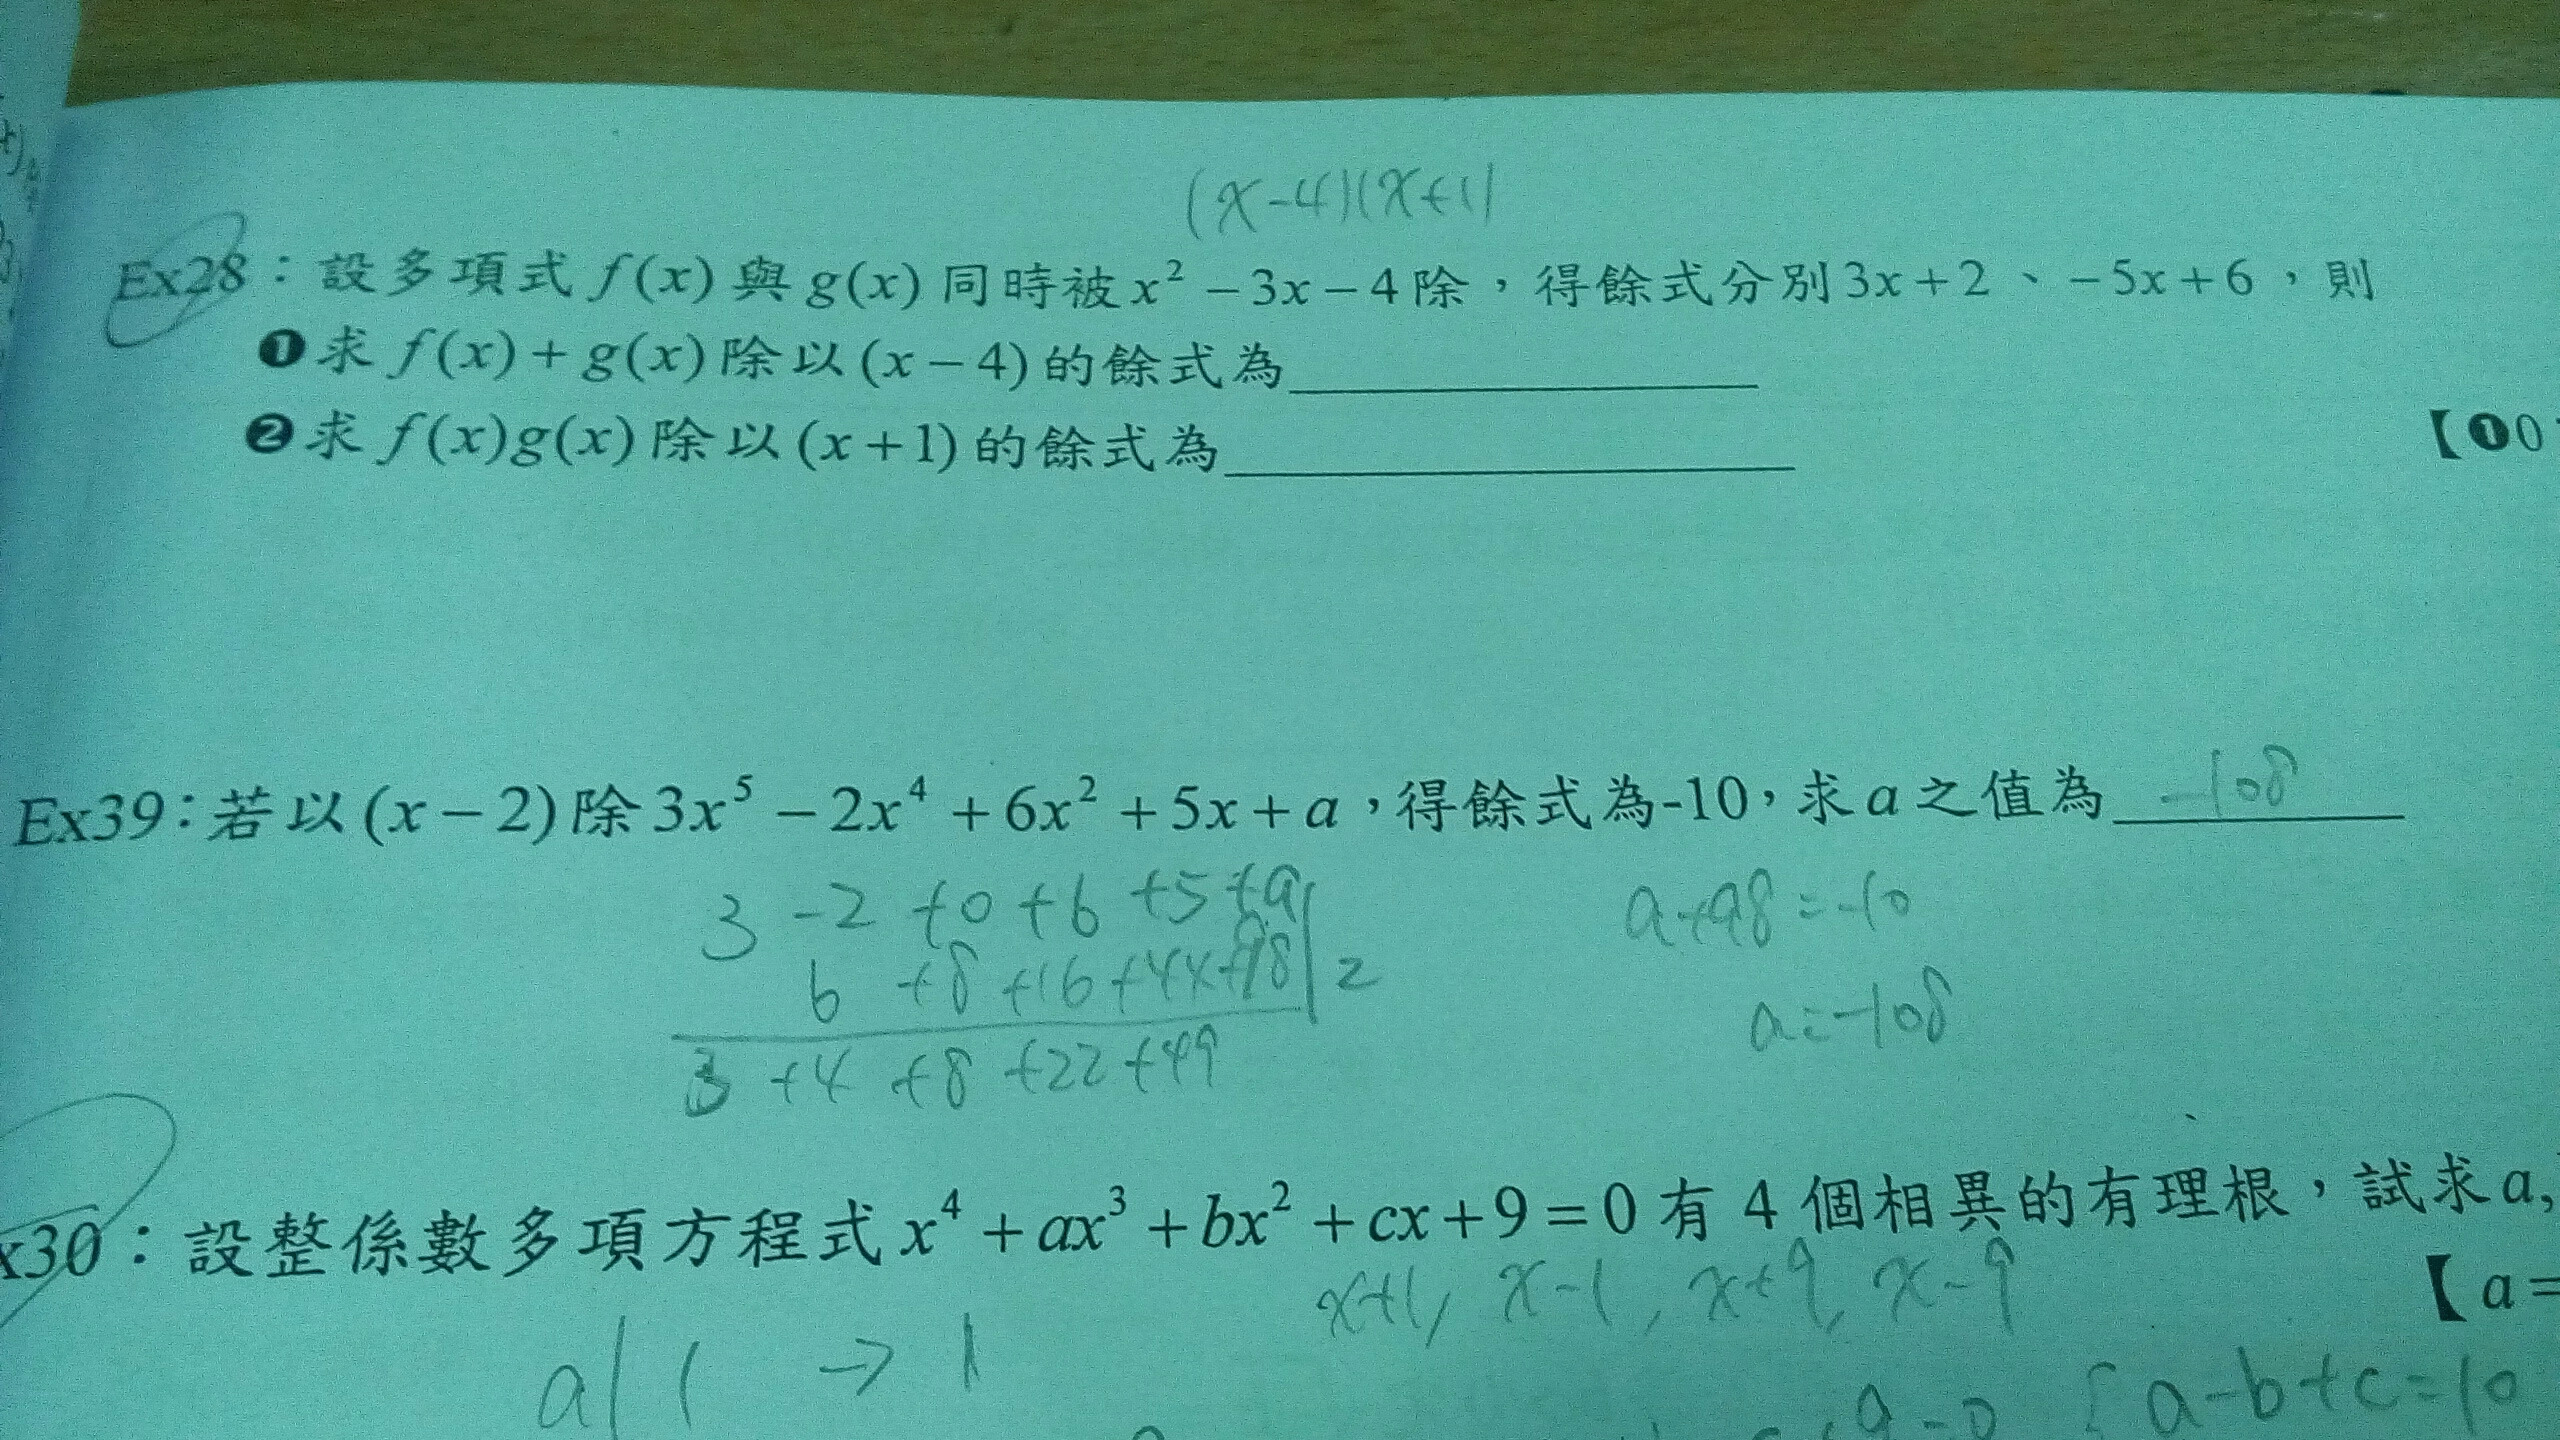 (x-4)(x+1)
Ex28：設多項式 f(x) 與 g(x) 同時被 x² － 3x － 4 除，得餘式分別 3x + 2、－5x + 6，則
❶求 f(x) + g(x) 除以 (x － 4) 的餘式為
❷求 f(x)g(x) 除以 (x + 1) 的餘式為
【❶0
Ex39：若以 (x － 2) 除 3x⁵ － 2x⁴ + 6x² + 5x + a，得餘式為-10，求 a 之值為 -108
3 -2 +0 +6 +5 +a
6 +8 +16 +44 +98 | 2
3 +4 +8 +22 +49
a+98=-10
a=-108
x30：設整係數多項方程式 x⁴ + ax³ + bx² + cx + 9 = 0 有 4 個相異的有理根，試求 a,
x+1, x-1, x+9, x-9
【a =
a|1 → 1
a-b+c=10